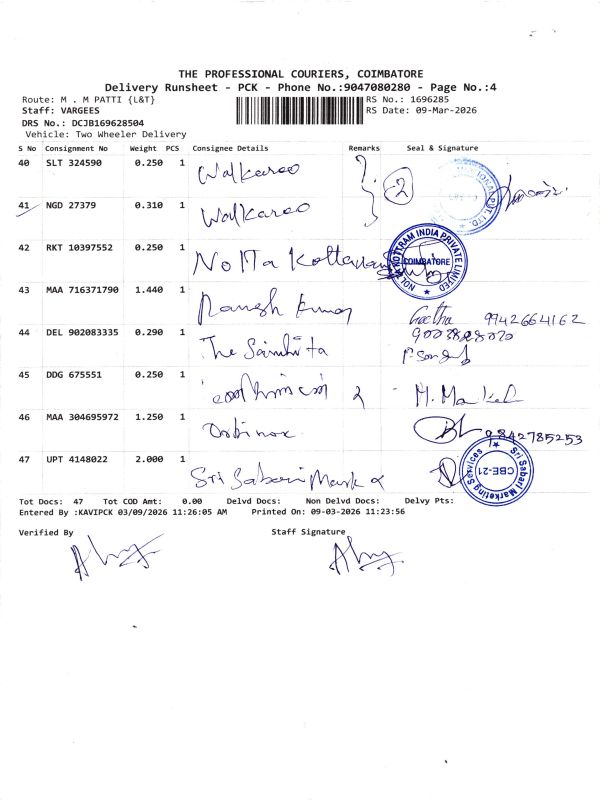 THE PROFESSIONAL COURIERS, COIMBATORE
Delivery Runsheet - PCK - Phone No.:9047080280 - Page No.:4
Route: M . M PATTI {L&T} RS No.: 1696285
Staff: VARGEES RS Date: 09-Mar-2026
DRS No.: DCJB169628504
Vehicle: Two Wheeler Delivery
S No Consignment No Weight PCS Consignee Details Remarks Seal & Signature
40 SLT 324590 0.250 1 Walkaroo 2
41 NGD 27379 0.310 1 Walkaroo
42 RKT 10397552 0.250 1 Nolta Kottaram NOLTA KOTTRAM INDIA PRIVATE LIMITED COIMBATORE
43 MAA 716371790 1.440 1 Ramesh Kumar Geetha 9942664162
44 DEL 902083335 0.290 1 The
45 DDG 675551 0.250 1 2 M.
46 MAA 304695972 1.250 1 9842785253
47 UPT 4148022 2.000 1 Sri Sabari Mark Sri Sabari Marketing Services CBE-21
Tot Docs: 47 Tot COD Amt: 0.00 Delvd Docs: Non Delvd Docs: Delvy Pts:
Entered By :KAVIPCK 03/09/2026 11:26:05 AM Printed On: 09-03-2026 11:23:56
Verified By Staff Signature